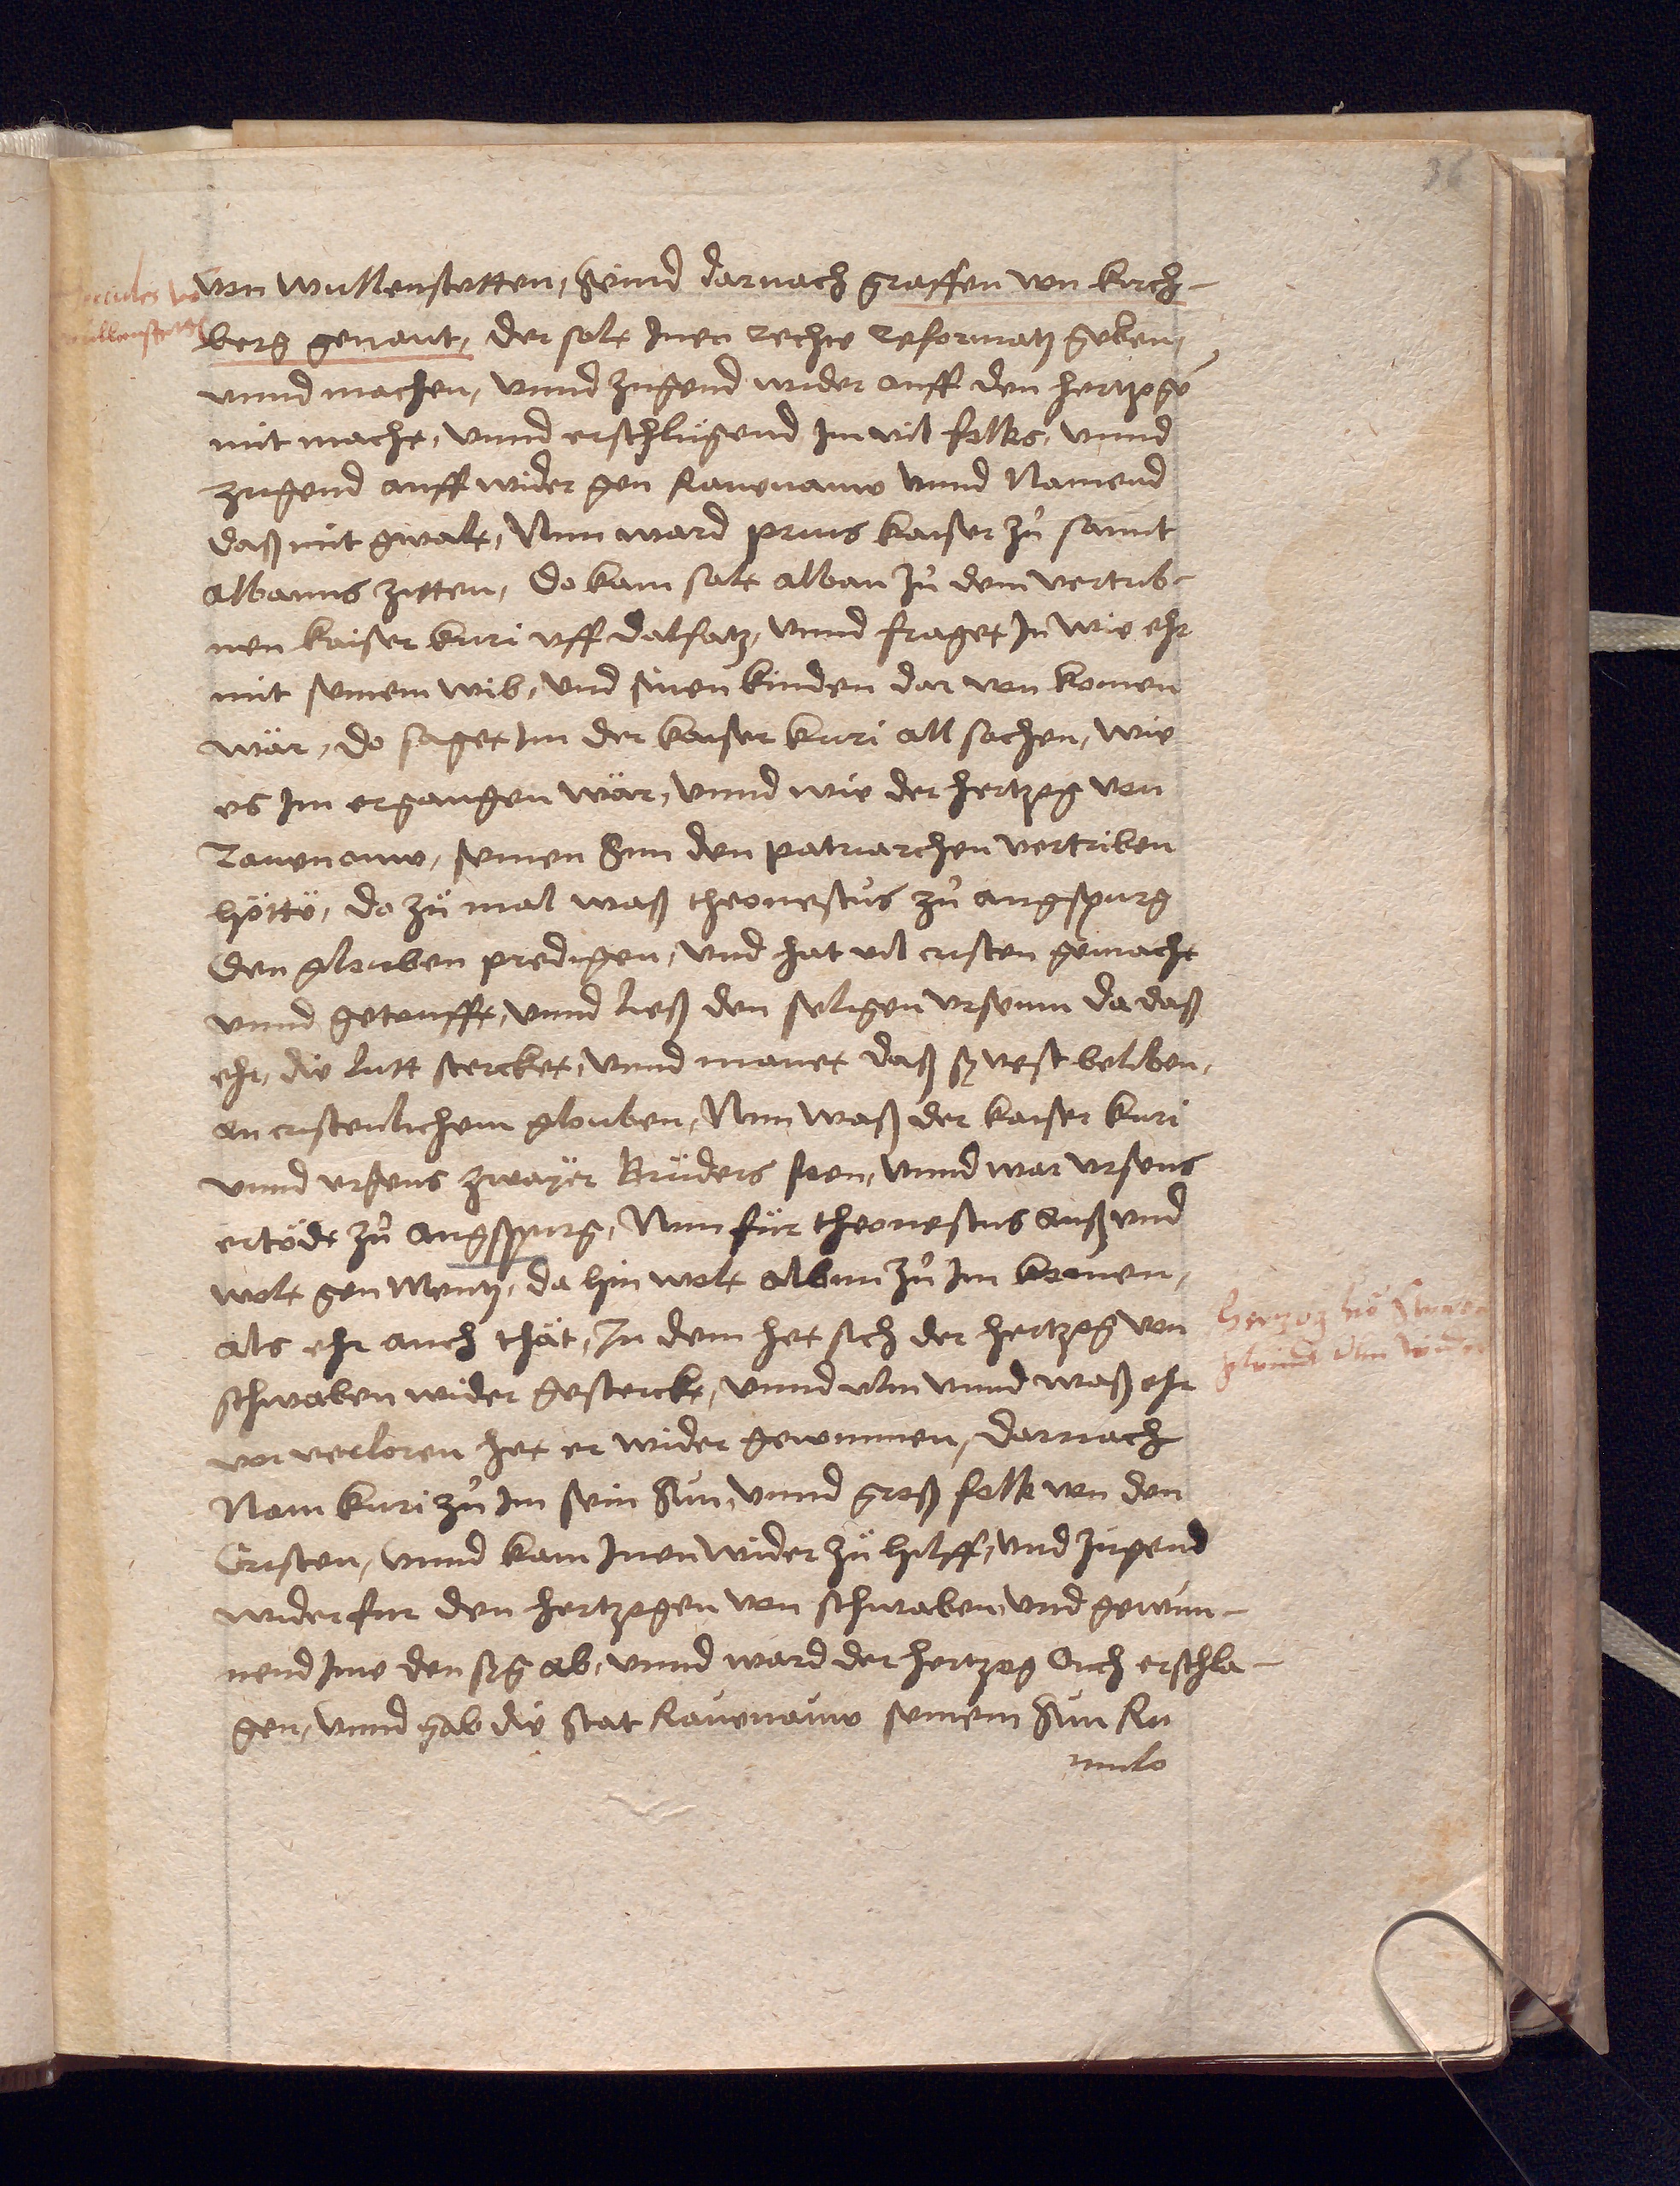 36
von wullenstetten, Seind darnach graffen von kirch-
berg genant, der solt Inen rechte reformatz geben,
vnnd machen, vnnd zugend wider auff den hertzogē
mit macht, vnnd erschlůgend Im vil folks, vnnd
zugend auff wider gen Rauenauw vnnd Namend
daß mit gwalt, Nun ward prius kaiser zů sannt
Albanus zitten, Do kam salt alban zů dem vertrib-
nen kaiser kuri vff dalfatz, vnnd fraget In wie ehr
mit seinem wib, vnd sinen kinden dar von komen
wär, do saget Im der kaiser kuri all sachen, wie
es Im ergangen wär, vnnd wie der hertzog von
Rauenauw, seinen Sun den patriarchen vertriben
hötte, do zů mal waß theonestus zů augspurg
den glouben predigen, vnd hat vil cristen gemacht
vnnd getaufft, vnnd ließ den seligen vrseum da daß
ehr, die lutt stercket, vnnd manet daß sy vest beliben,
an cristenlichem glouben, Nun waß der kaiser kuri
vnnd vrseus zwayer Brůders sien, vnnd war vrseus
ertödt zů augspurg, Nun fůr theonestus auß vnd
wolt gen Mentz, da hin wolt alban zů Im komen,
als ehr auch thät, In dem het sich der hertzog von
schwaben wider gesterckt, vnnd vlm vnnd waß ehr
vor verloren het er wider gewunnen, darnach
Nam kuri zů Im sein Sun, vnnd groß folk von den
Cristen, vnnd kam Inen wider zů hilff, vnd zugend
wider fur den hertzogen von schwaben vnd gewun-
nend Ime den syg ab, vnnd ward der hertzog Ouch erschla-
gen, vnnd gab die Stat Rauenauw seinem Sun Ro
mulo
hertzog vō Swaben
gwint vlm wider